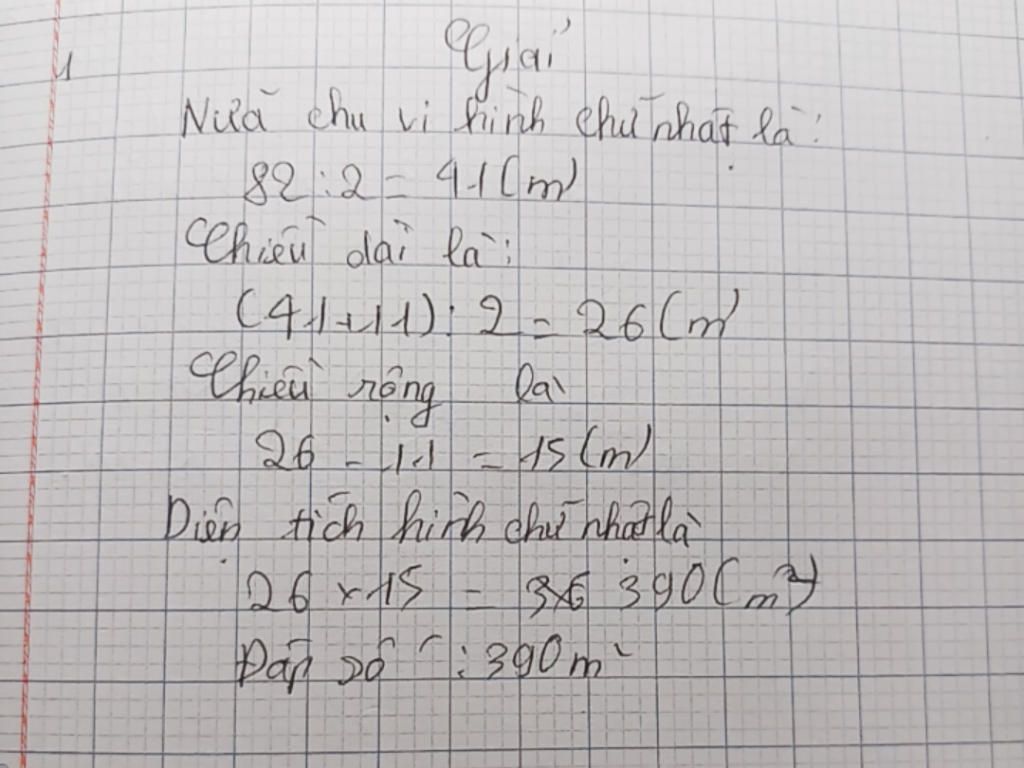 1
Giải
Nửa chu vi hình chữ nhật là:
82 : 2 = 41 (m)
Chiều dài là:
(41 + 11) : 2 = 26 (m
Chiều rộng là
26 - 11 = 15 (m)
Diện tích hình chữ nhật là
26 x 15 = 390 (m²)
Đáp số : 390 m²